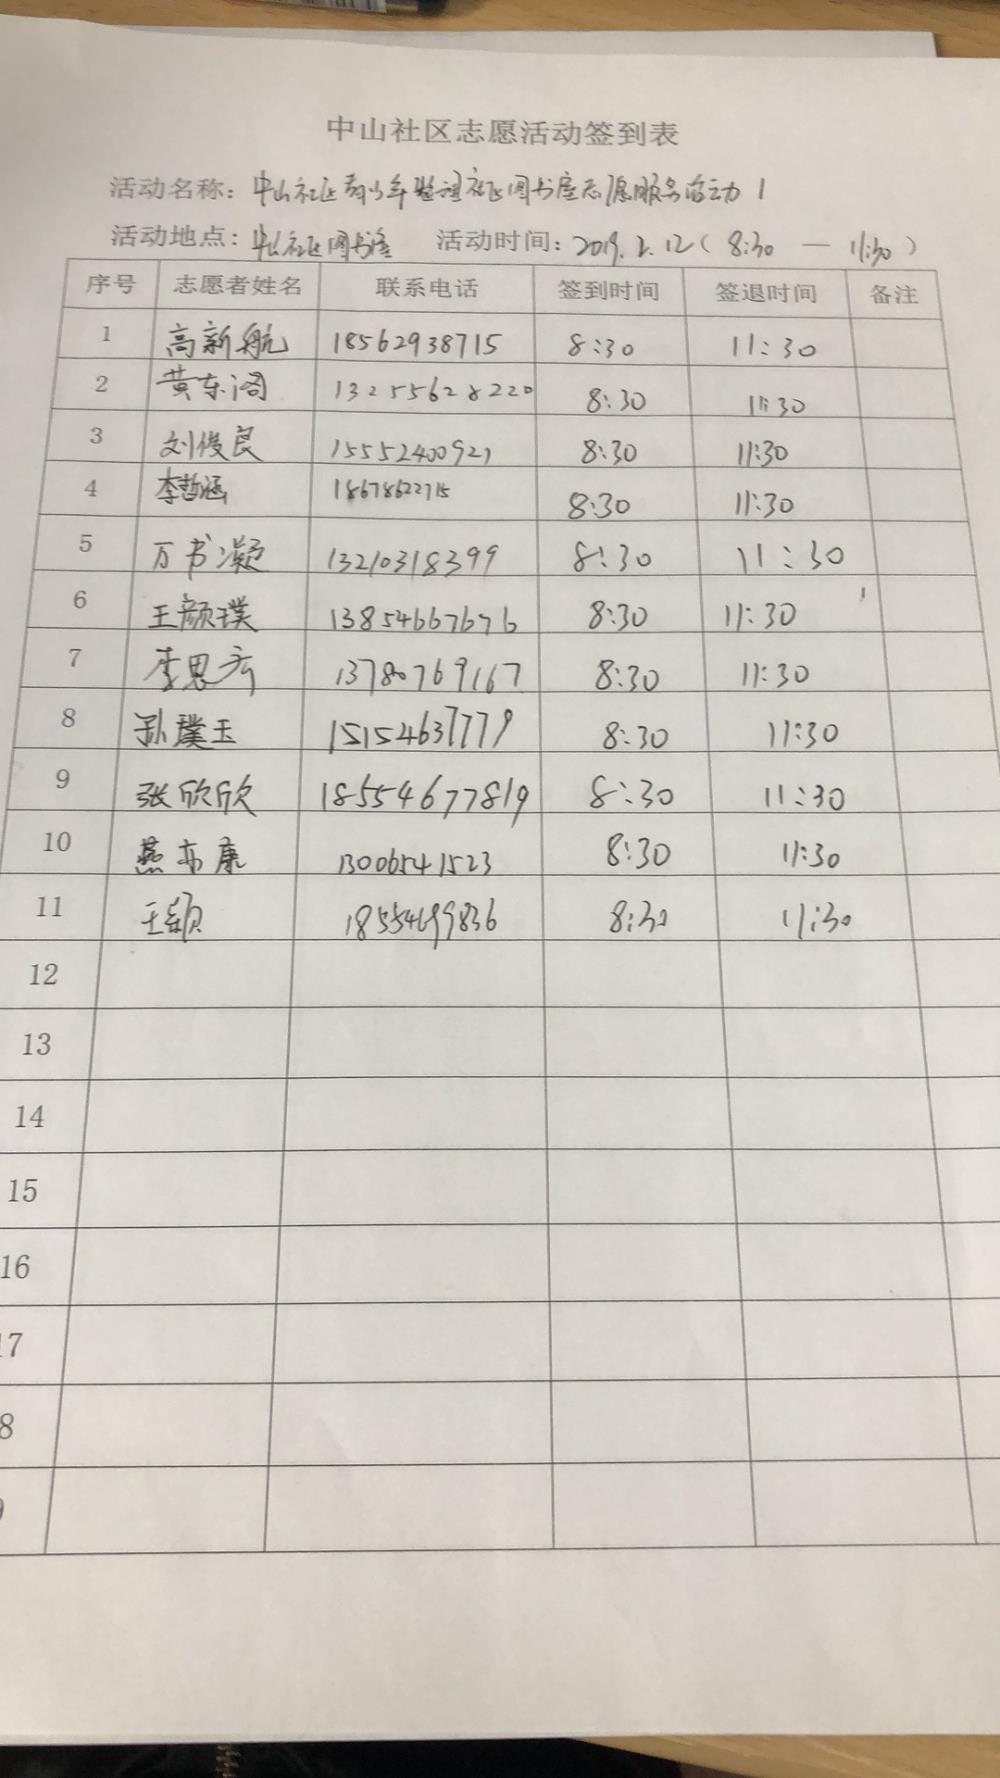 中山社区志愿活动签到表
活动名称：中山社区青少年整理社区图书室志愿服务活动1
活动地点：中山社区图书室 活动时间：2019.2.12（8:30 — 11:30）
序号 志愿者姓名 联系电话 签到时间 签退时间 备注
1 高新航 18562938715 8:30 11:30
2 黄东阁 13255628220 8:30 11:30
3 刘俊良 15552400921 8:30 11:30
4 李哲涵 18678622715 8:30 11:30
5 万书凝 13210318399 8:30 11:30
6 王颜璞 13854667676 8:30 11:30
7 李思 13780769167 8:30 11:30
8 孙璞玉 15154637779 8:30 11:30
9 张欣欣 18554677819 8:30 11:30
10 燕亦康 13006541523 8:30 11:30
11 王颖 18554699836 8:30 11:30
12
13
14
15
16
17
8